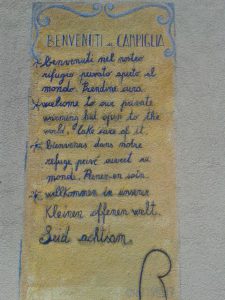 BENVENUTI a CAMPIGLIA
* Benvenuti nel nostro
rifugio privato aperto al
mondo. Prendine cura.
* welcome to our private
warning but open to the
world, take care of it.
* bienvenus dans notre
refuge privé ouvert au
monde. Prenez-en soin.
* willkommen in unserer
Kleinen offenen welt.
Seid achtsam.